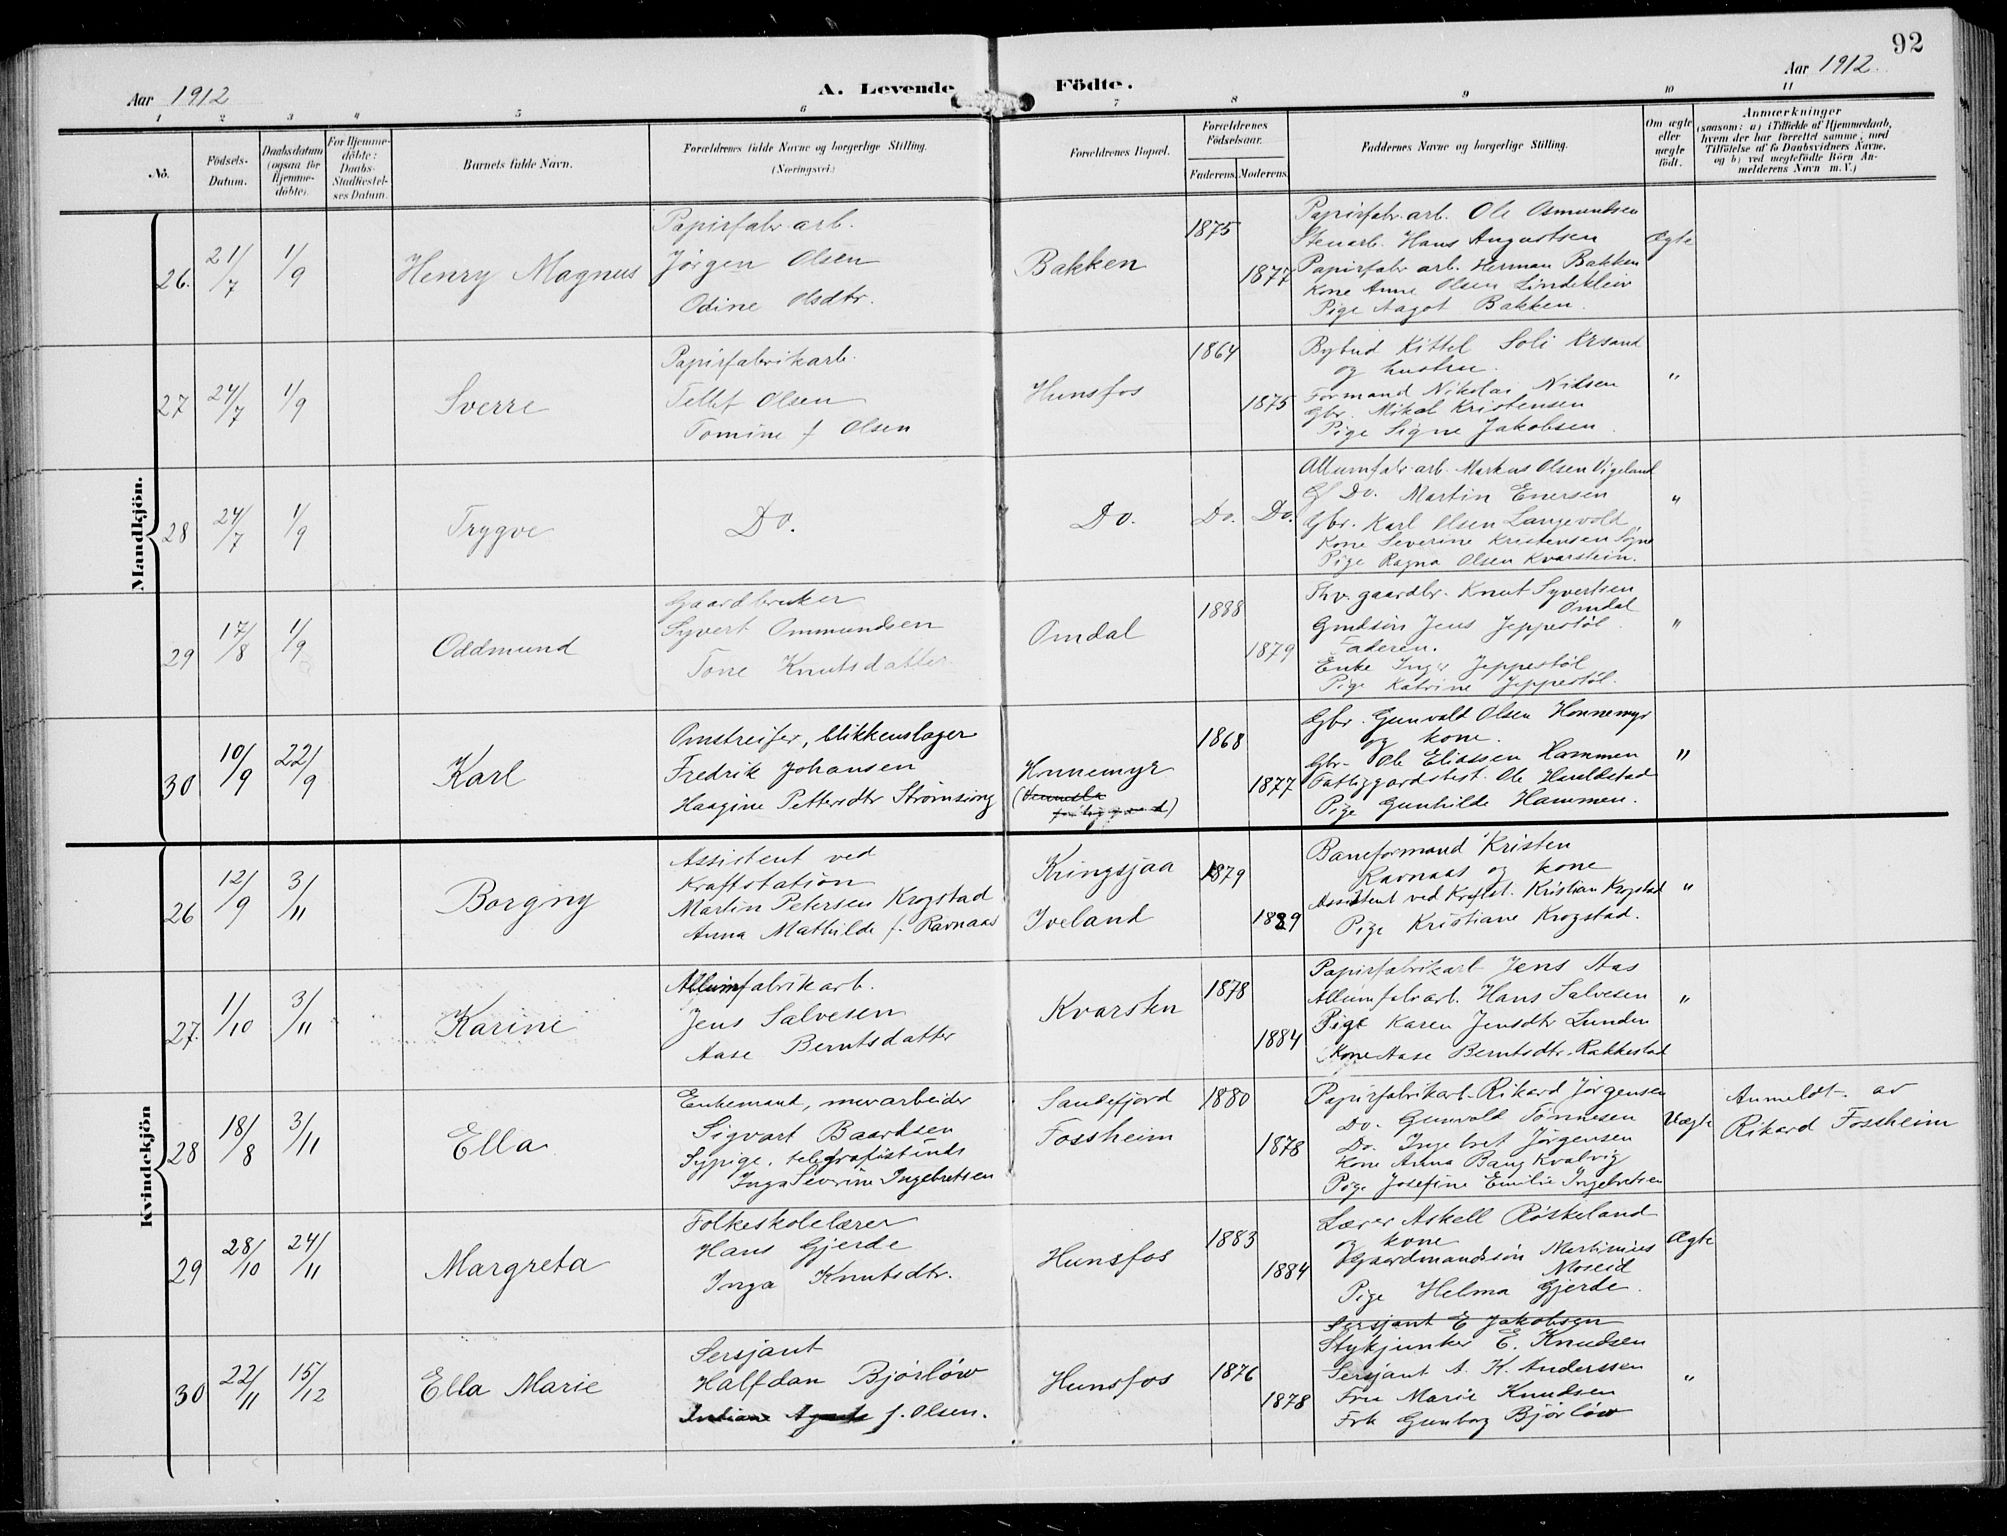 92
Aar 1912
A. Levende Födte.
Aar 1912.
1 2 3 4 5 6 7 8 9 10 11
No.
Födsels-Datum.
Daabsdatum (ogsaa for Hjemme-döbte).
For Hjemme-döbte: Daabs-Stadfæstel-ses Datum.
Barnets fulde Navn.
Forældrenes fulde Navne og borgerlige Stilling. (Næringsvei.)
Forældrenes Bopæl.
Forældrenes Födselsaar.
Faderens. Moderens.
Faddernes Navne og borgerlige Stilling.
Om ægte eller uægte födt.
Anmærkninger
(saasom: a) i Tilfælde af Hjemmedaab,
hvem der har forrettet samme, med
Tilföielse af to Daabsvidners Navne,
og b) ved uægtefödte Börn An-
melderens Navn m. V.)
Mandkjön.
26. 21/7 1/9 Henry Magnus
Papirfabr. arb.
Jørgen Olsen
Odine Olsdtr.
Bakken
1875
1877
Papirfabr. arb. Ole Osmundsen
Stenarb. Hans Augustsen
Papirfabr arb. Herman Bakken
Kone Anne Olsen Lindekleiv
Pige Aagot Bakken.
Ægte
27 24/7 1/9 Sverre
Papirfabrikarb.
Tellef Olsen
Tomine f Olsen
Hunsfos
1864
1875
Bybud Kittel Soli Krsand
og hustru.
Formand Nikolai Nilsen
Gbr. Mikal Kristensen
Pige Signe Jakobsen.
"
28 24/7 1/9 Trygve
Do.
Do.
Do. Do.
Allumfabr. arb. Markus Olsen Vigeland
Do. Martin Enersen
Gbr. Karl Olsen Langevold
Kone Severine Kristensen Søgne
Pige Ragna Olsen Kvarstein.
"
29 17/8 1/9 Oddmund
Gaardbruker
Syvert Ommundsen
Tone Knutsdatter
Omdal
1888
1879
Fhv. gaardbr. Knut Syvertsen
Omdal
Grndsøn Jens Jeppestøl
Faderen.
Enke Inger Jeppestøl
Pige Katrine Jeppestøl.
"
30 10/9 22/9 Karl
Omstreifer, blikkenslager
Fredrik Johansen
Haagine Pettersdtr Strømsing
Honnemyr
(Vennesla
fattiggaard)
1868
1877
Gbr. Gunvald Olsen Honnemyr
og kone.
Gbr. Ole Eliassen Hammen
Fattiggardsbest. Ole Hauldstad
Pige Gunhilde Hammen.
"
Kvindekjön
26 12/9 3/11 Borgny
Assistent ved
Kraftstation
Martin Petersen Krogstad
Anna Mathilde f. Ravnaas
Kringsjaa
Iveland
1879
1889
Baneformand Kristen
Ravnaas og kone
Assistent ved Krafst. Kristian Krogstad
Pige Kristiane Krogstad.
"
27. 1/10 3/11 Karine
Allumfabrikarb.
Jens Salvesen
Aase Berntsdatter
Kvarsten
1878
1884
Papirfabrikarb Jens Aas
Allumfabrarb. Hans Salvesen
Pige Karen Jensdtr Lunden
Kone Aase Berntsdtr. Rakkestad
"
28 18/8 3/11 Ella
Enkemand, murarbeider
Sigvart Baardsen
Sypige, telegrafistinde
Inga Severine Ingebretsen
Sandefjord
Fossheim
1880
1878
Papirfabrikarb. Rikard Jørgensen
Do. Gunvald Tønnesen
Do. Ingebret Jørgensen
Kone Anna Bang Kvalvig
Pige Josefine Emilie Ingebretsen
Uægte
Anmeldt av
Rikard Fossheim
29 28/10 24/11 Margreta
Folkeskolelærer
Hans Gjerde
Inga Knutsdtr.
Hunsfos
1883
1884
Lærer Askell Røskeland
og kone
Gaardmandssøn Martinius
Moseid
Pige Helma Gjerde.
Ægte
30 22/11 15/12 Ella Marie
Sersjant
Halfdan Bjørløw
f. Olsen.
Hunsfos
1876
1878
Sersjant E Jakobsen
Stykjunker E. Knudsen
Sersjant A. K. Anderssen
Fru Marie Knudsen
Frk Gunborg Bjørløw
"